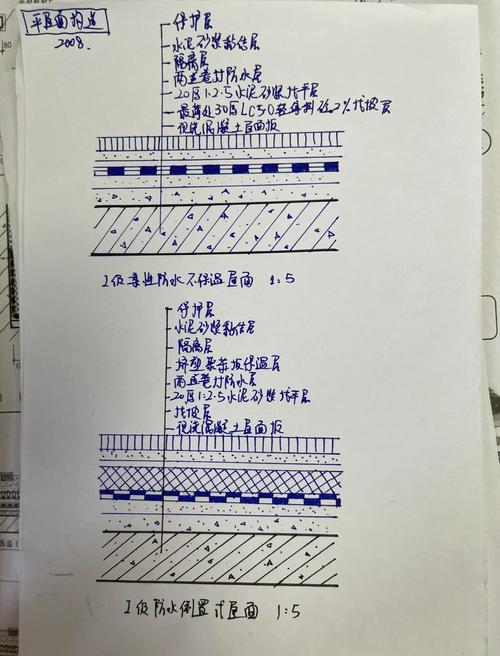 平屋面构造
2008.
保护层
水泥砂浆黏结层
隔离层
两道卷材防水层
20厚1:2.5水泥砂浆找平层
最薄处30厚LC5.0轻骨料 2%找坡层
现浇混凝土屋面板
I级柔性防水不保温屋面 1:5
保护层
水泥砂浆黏结层
隔离层
挤塑聚苯板保温层
两道卷材防水层
20厚1:2.5水泥砂浆找平层
找坡层
现浇混凝土屋面板
I级防水倒置式屋面 1:5
80